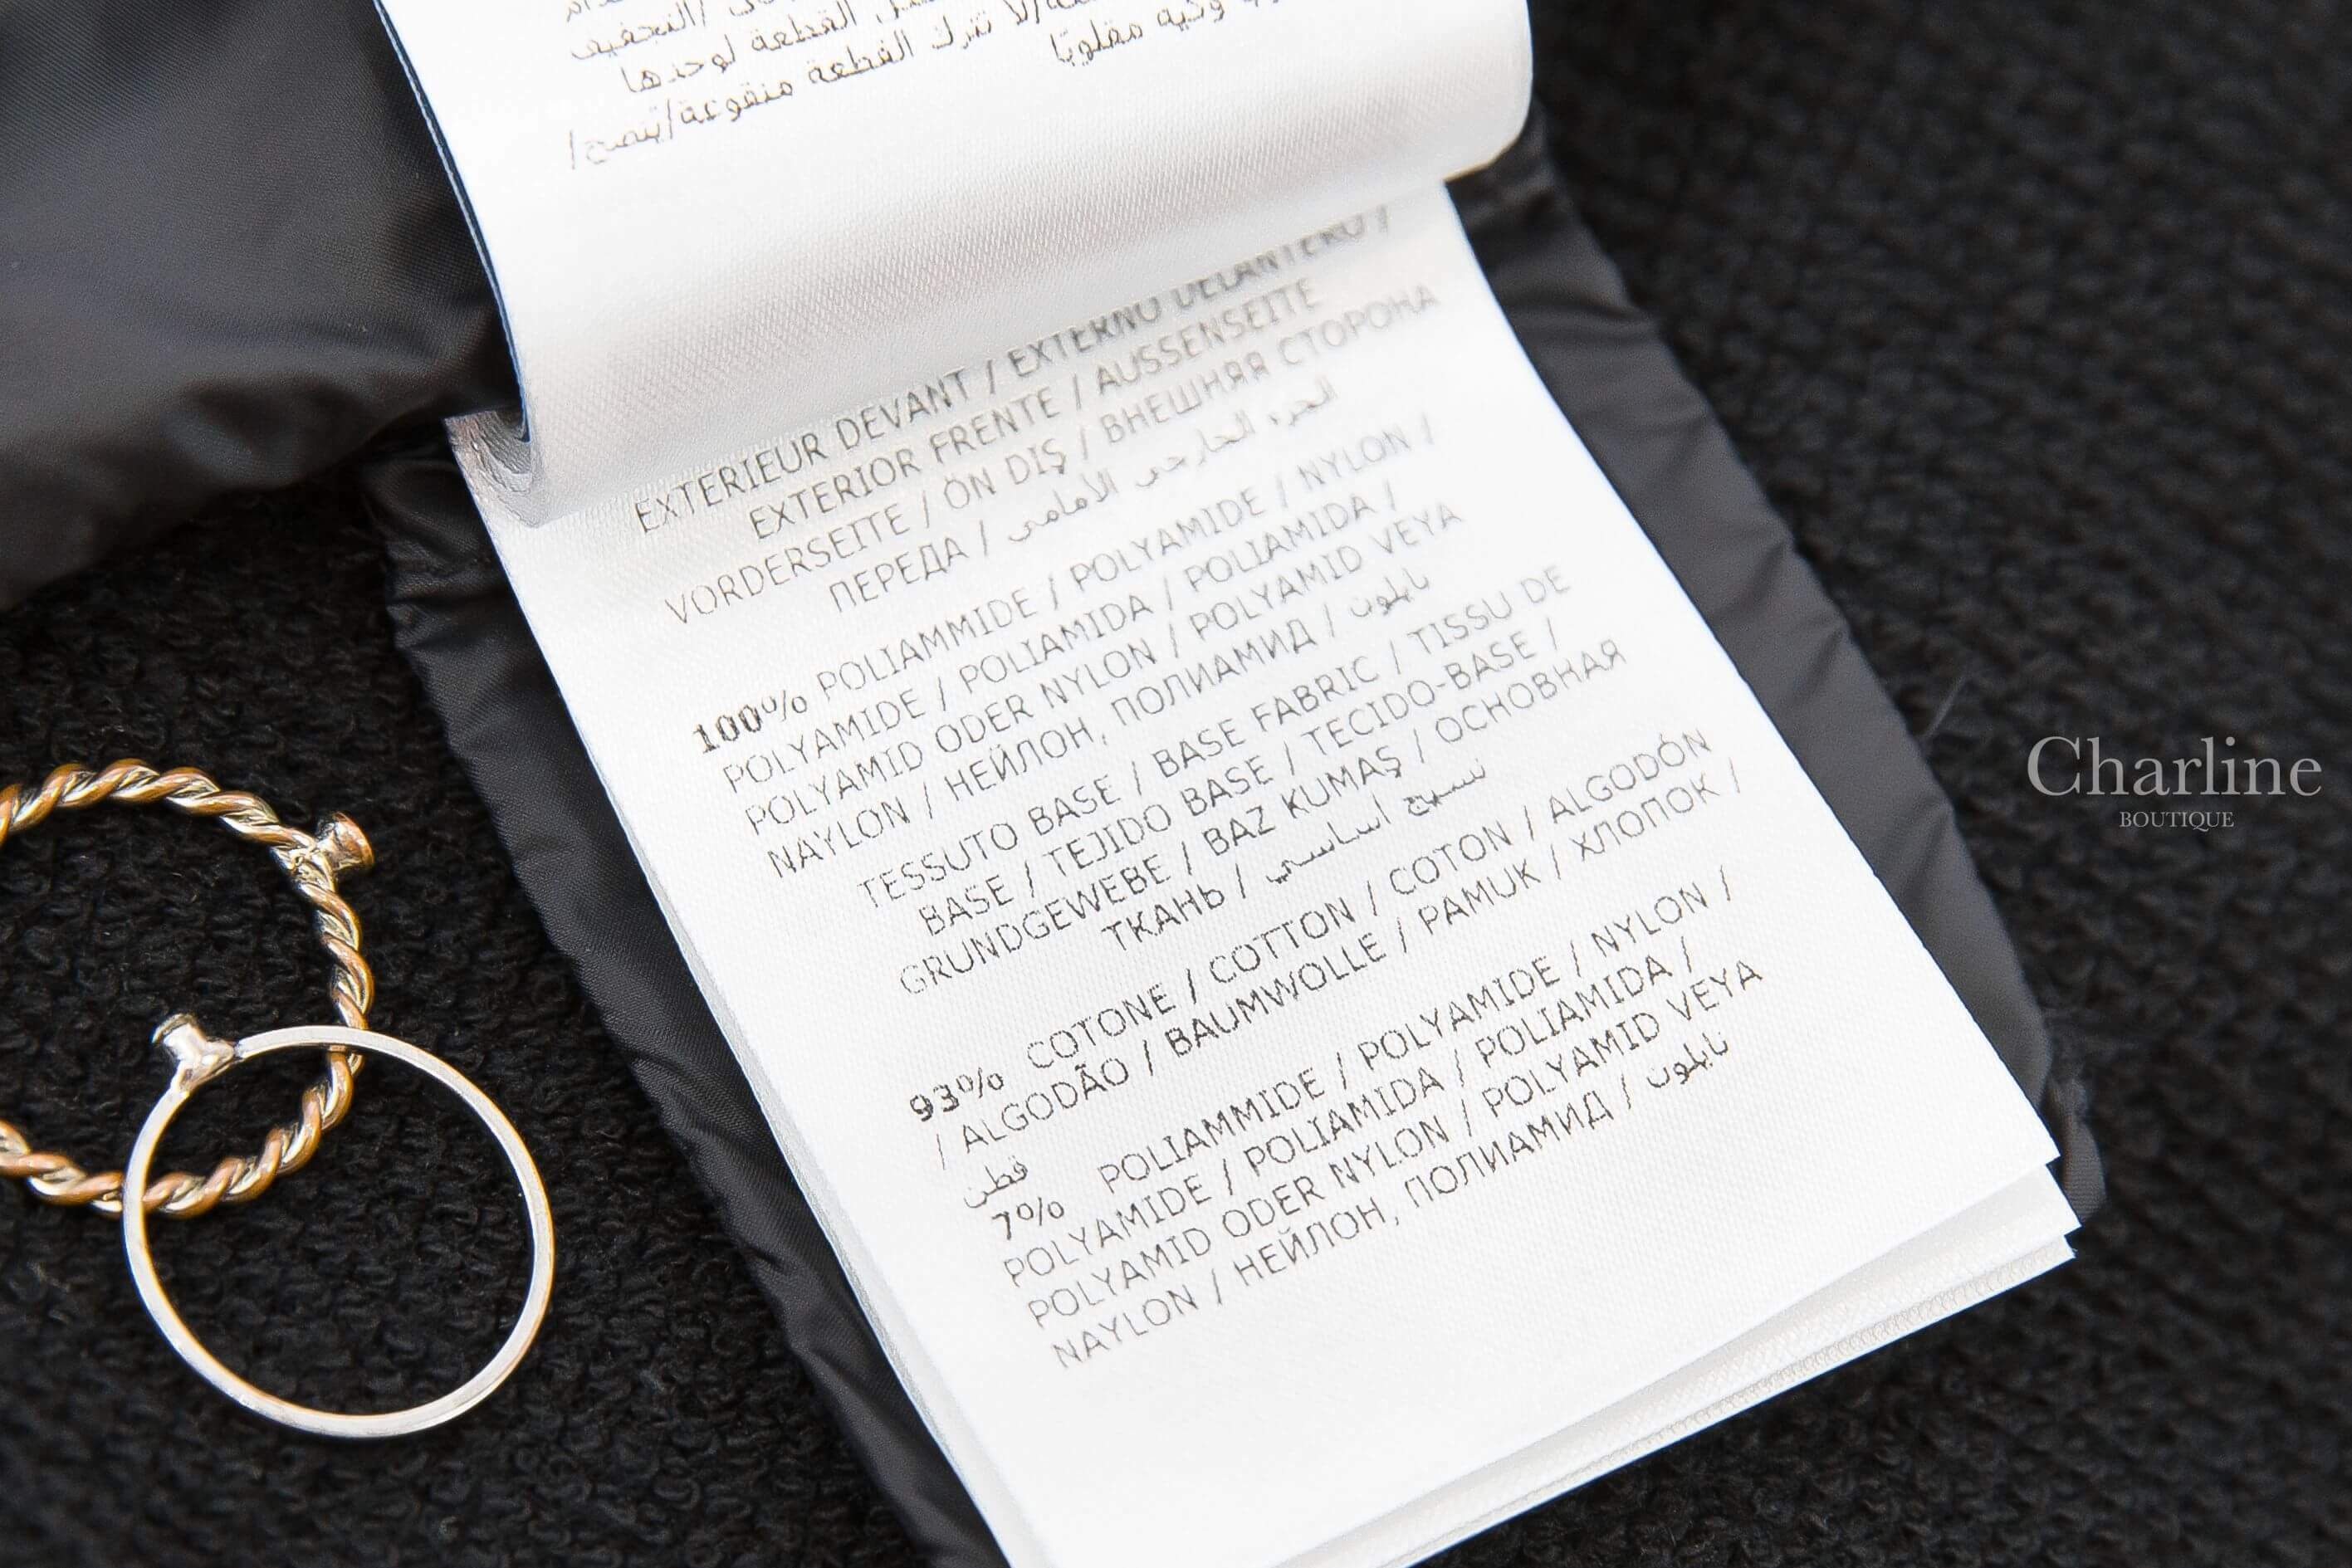 القطعة لوحدها
لا تترك القطعة منقوعة/ينصح/
وكيه مقلوبًا
EXTERIEUR DEVANT / EXTERNO DELANTERO /
EXTERIOR FRENTE / AUSSENSEITE
VORDERSEITE / ÖN DIŞ / ВНЕШНЯЯ СТОРОНА
ПЕРЕДА / الجزء الخارجي الأمامي
100% POLIAMMIDE / POLYAMIDE / NYLON /
POLYAMIDE / POLIAMIDA / POLIAMIDA /
POLYAMID ODER NYLON / POLYAMID VEYA
NAYLON / НЕЙЛОН, ПОЛИАМИД / نايلون
TESSUTO BASE / BASE FABRIC / TISSU DE
BASE / TEJIDO BASE / TECIDO-BASE /
GRUNDGEWEBE / BAZ KUMAŞ / ОСНОВНАЯ
ТКАНЬ / نسيج أساسي
93% COTONE / COTTON / COTON / ALGODÓN
/ ALGODÃO / BAUMWOLLE / PAMUK / ХЛОПОК /
قطن
7% POLIAMMIDE / POLYAMIDE / NYLON /
POLYAMIDE / POLIAMIDA / POLIAMIDA /
POLYAMID ODER NYLON / POLYAMID VEYA
NAYLON / НЕЙЛОН, ПОЛИАМИД / نايلون
Charline
BOUTIQUE